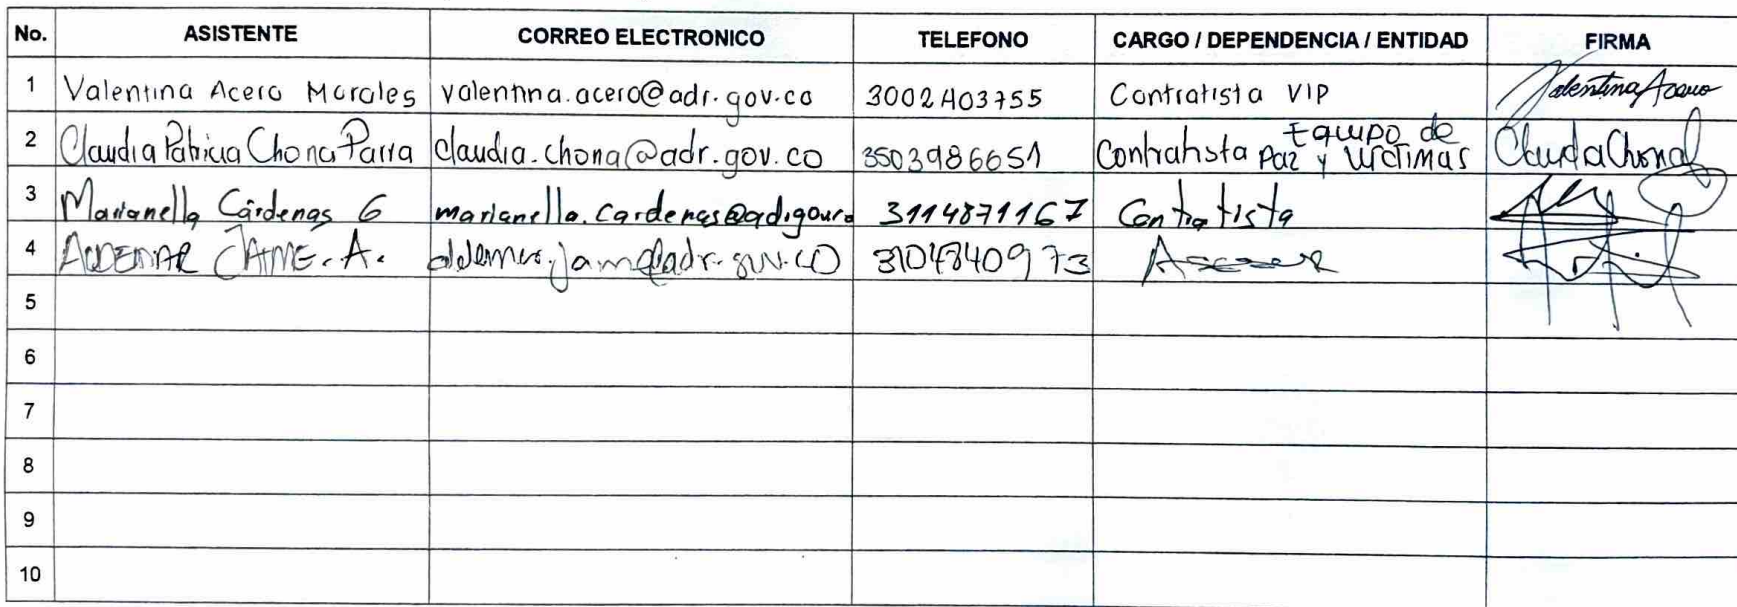 No. ASISTENTE CORREO ELECTRONICO TELEFONO CARGO / DEPENDENCIA / ENTIDAD FIRMA
1 Valentina Acero Morales valentina.acero@adr.gov.co 3002403755 Contratista VIP Valentina Acero
2 Claudia Patricia Chona Parra claudia.chona@adr.gov.co 3503986651 Contratista Equipo de Paz y Víctimas Claudia Chona
3 Marianella Cárdenas G marianella.cardenas@adr.gov.co 3114871167 Contratista
4 ALDEMAR JAIME. A. 3104840973 Asesor
5
6
7
8
9
10